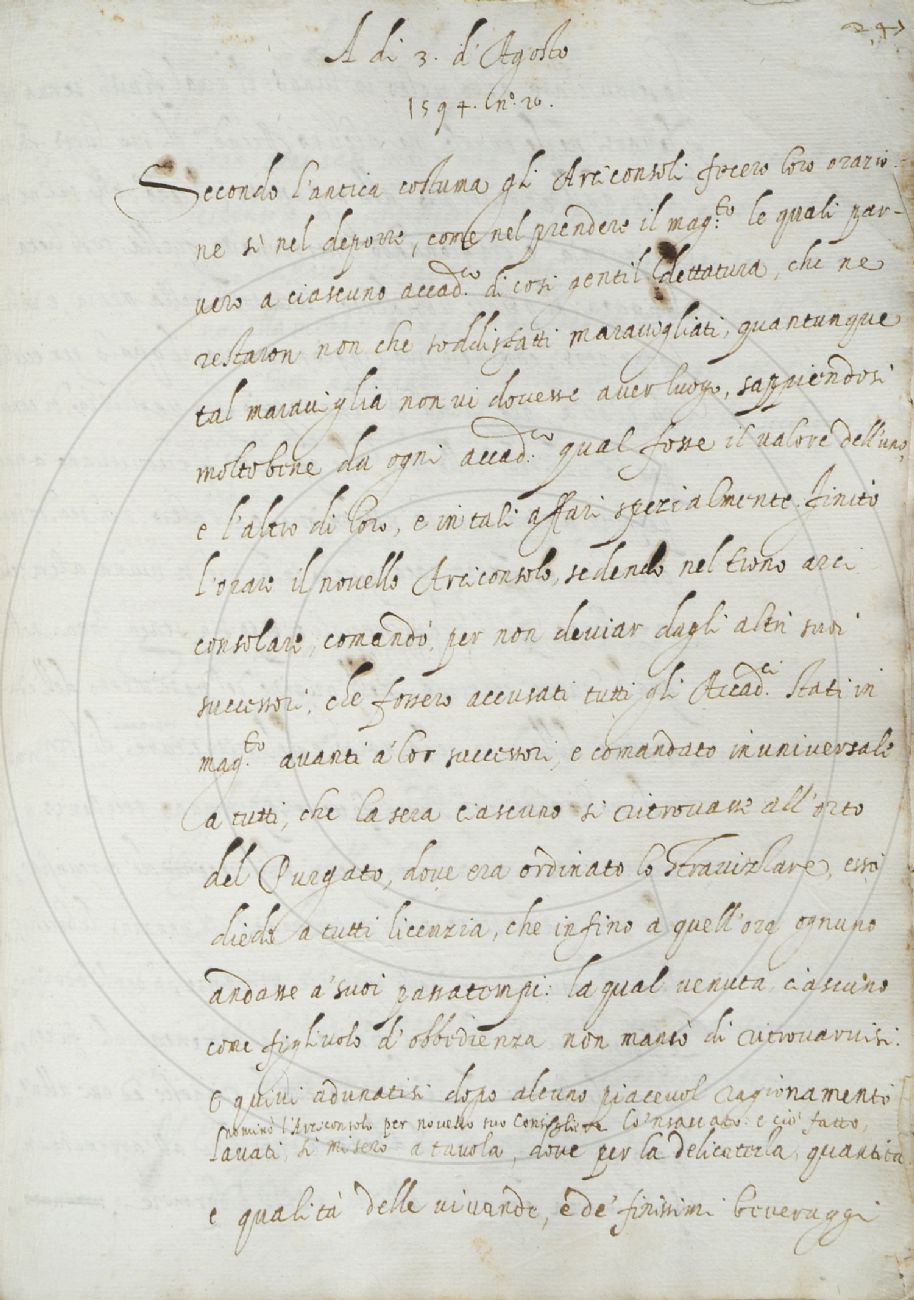 A di 3. d'Agosto
1594. nº. 20.
Secondo l'antica costuma gli Arciconsoli fecero loro orazio-
ne sì nel deporre, come nel prendere il mag.to le quali par-
vero a ciascuno accad.co di così gentil dettatura, che ne
restaron non che soddisfatti maravigliati, quantunque
tal maraviglia non vi dovesse aver luogo, sappiendosi
moltobene da ogni accad.co qual fosse il valore dell'uno,
e l'altro di loro, e in tali affari spezialmente. Finito
l'orare il novello Arciconsolo, sedendo nel trono arci
consolare, comandò, per non deviar dagli altri suoi
successori, che fossero accusati tutti gli Accad.ci stati in
mag.to avanti a' lor successori, e comandato in universale
a tutti, che la sera ciascuno si ritrovasse all'orto
del Purgato, dove era ordinato lo Stravizzare, essi
diede a tutti licenzia, che infino a quell'ora ognuno
andasse a' suoi passatempi: la qual venuta ciascuno
come figliuolo d'obbedienza non mancò di ritrovarvisi.
e quivi adunatisi dopo alcuno piacevol ragionamento
nominò l'Arciconsolo per novello suo Consigliere lo 'nsaccato: e ciò fatto,
lavati, si misero a tavola, dove per la delicatezza, quantità
e qualità delle vivande, e de' finissimi beveraggi